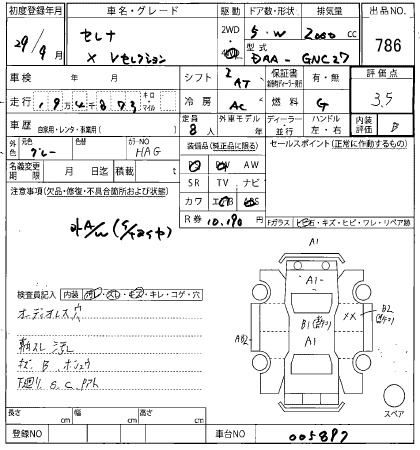 初度登録年月 車名・グレード 駆動 ドア数・形状 排気量 出品NO.
29/9月 セレナ X Vセレクション 2WD 4WD 5・W 2000 cc 786
型式 DAA-GNC27
車検 年 月 シフト I AT 保証書 有・無 評価点
走行 19万4千873 キロ・マイル 冷房 AC 燃料 G 3.5
車歴 自家用・レンタ・事業用( ) 定員 8人 外車モデル 年 ディーラー・並行 ハンドル 左・右 内装評価 B
外色 元色 グレー 色替 カラーNO HAG 装備品(純正品に限る) セールスポイント(正常に作動するもの)
名義変更期限 月 日迄 積載 t PS PW AW
SR TV ナビ
注意事項(欠品・修復・不具合箇所および状態) カワ エアB ABS
外A/W R券 10,190 円
Fガラス 石・キズ・ヒビ・ワレ・リペア跡
A1
A1-
検査員記入 内装 汚レ・スレ・キズ・キレ・コゲ・穴
B1 XX B2
オーディオレス穴
AB2 A1
スレ 汚レ
キズ B
下廻り S.C.
スペア
長さ cm 幅 cm 高さ cm
登録NO 車台NO 005897